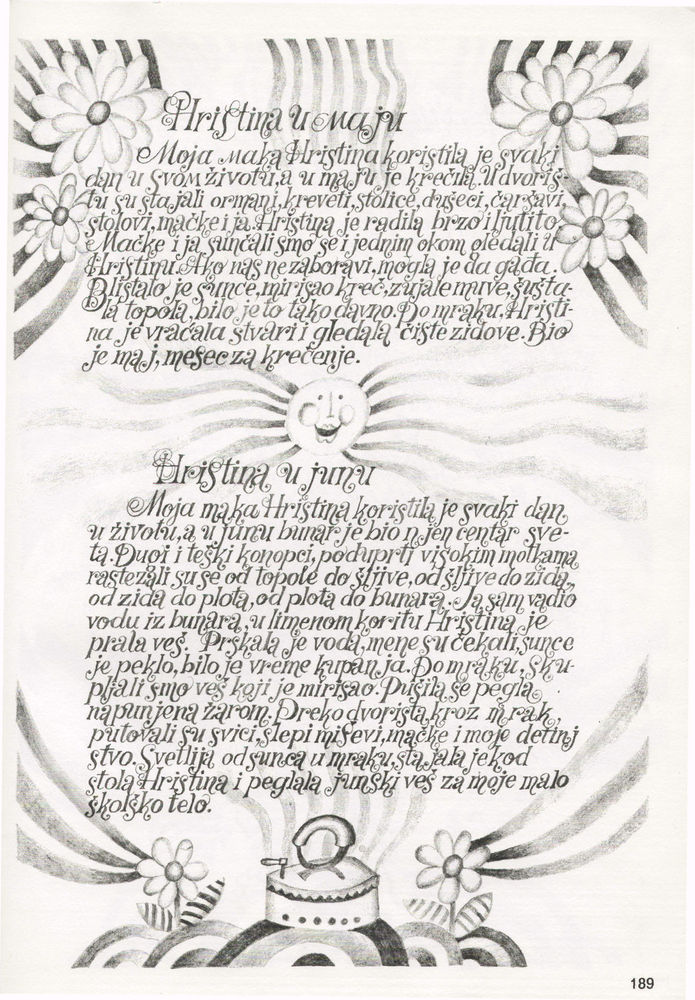 Hristina u maju
Moja maka Hristina koristila je svaki
dan u svom životu, a u maju je krečila. U dvoriš-
tu su stajali ormani, kreveti, stolice, dušeci, čaršavi,
stolovi, mačke i ja. Hristina je radila brzo i ljutito.
Mačke i ja sunčali smo se i jednim okom gledali u
Hristinu. Ako nas ne zaboravi, mogla je da gađa.
Blistalo je sunce, mirisao kreč, zujale muve, šušta-
la topola, bilo je to tako davno. Do mraku, Hristi-
na je vraćala stvari i gledala čiste zidove. Bio
je maj, mesec za krečenje.
Hristina u junu
Moja maka Hristina koristila je svaki dan
u životu, a u junu bunar je bio njen centar sve-
ta. Dugi i teški konopci, poduprti visokim motkama
rastezali su se od topole do šljive, od šljive do zida,
od zida do plota, od plota do bunara. Ja sam vadio
vodu iz bunara, u limenom koritu Hristina je
prala veš. Prskala je voda, mene su čekali, sunce
je peklo, bilo je vreme kupanja. Po mraku, sku-
pljali smo veš koji je mirisao. Pušila se pegla
napunjena žarom. Preko dvorišta, kroz mrak,
putovali su svici, slepi miševi, mačke i moje detinj
stvo. Svetlija od sunca u mraku, stajala je kod
stola Hristina i peglala junski veš za moje malo
školsko telo.
189